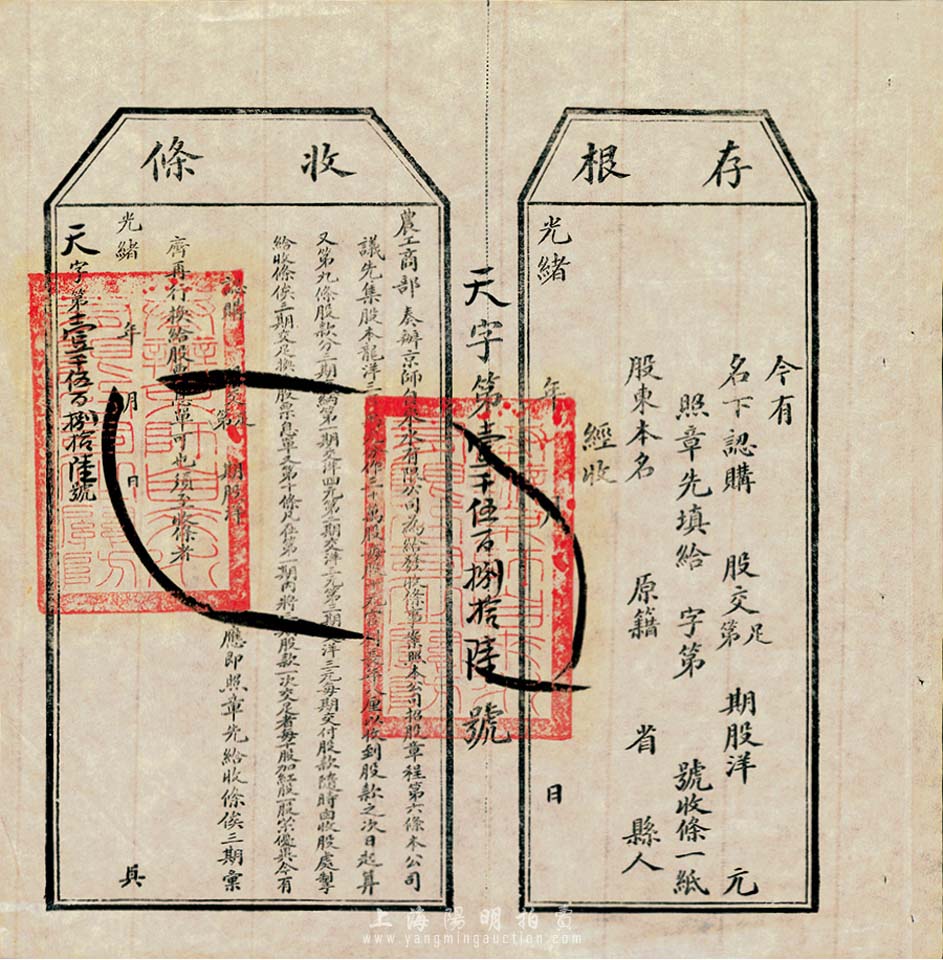 存根
今有
名下認購 股交足第 期股洋 元
照章先填給 字第 號收條一紙
股東本名 原籍 省 縣人
經收
光緒 年 日
天字第壹千伍百捌拾陸號
收條
農工商部 奏辦京師自來水有限公司為給發股條事案照本公司招股章程第六條本公司
議先集股本龍洋三 以收到股款之次日起算
又第九條股款分三期 納第一期交洋四元第二期交洋三元第三期交洋三元每期交付股款隨時由收股處掣
給收條俟三期交足換 股票息單又第十條凡在第一期內將 股款一次交足者每十股加紅股一股以示優異今有
認購 股交足第 期股洋 應即照章先給收條俟三期彙
齊再行換給股票息單可也須至收條者
光緒 年 月 日 具
天字第壹千伍百捌拾陸號
上海陽明拍賣
www.yangmingauction.com